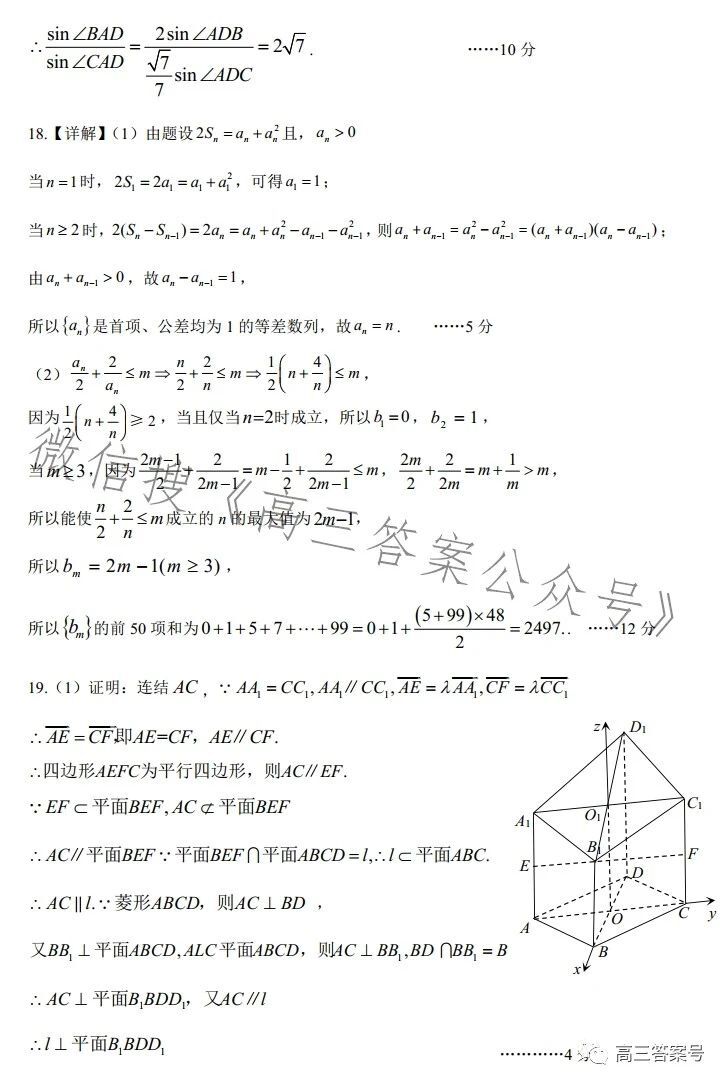 ∴ sin∠BAD/sin∠CAD = 2sin∠ADB/(√7/7 sin∠ADC) = 2√7. ……10 分
18.【详解】（1）由题设 2Sₙ = aₙ + aₙ² 且，aₙ > 0
当 n = 1 时，2S₁ = 2a₁ = a₁ + a₁²，可得 a₁ = 1；
当 n ≥ 2 时，2(Sₙ − Sₙ₋₁) = 2aₙ = aₙ + aₙ² − aₙ₋₁ − aₙ₋₁²，则 aₙ + aₙ₋₁ = aₙ² − aₙ₋₁² = (aₙ + aₙ₋₁)(aₙ − aₙ₋₁)；
由 aₙ + aₙ₋₁ > 0，故 aₙ − aₙ₋₁ = 1，
所以{aₙ}是首项、公差均为 1 的等差数列，故 aₙ = n. ……5 分
（2）aₙ/2 + 2/aₙ ≤ m ⇒ n/2 + 2/n ≤ m ⇒ 1/2(n + 4/n) ≤ m，
因为 1/2(n + 4/n) ≥ 2，当且仅当 n=2时成立，所以 b₁ = 0，b₂ = 1，
当 m ≥ 3，因为 (2m−1)/2 + 2/(2m−1) = m − 1/2 + 2/(2m−1) ≤ m，2m/2 + 2/2m = m + 1/m > m，
所以能使 n/2 + 2/n ≤ m 成立的 n 的最大值为 2m−1，
所以 bₘ = 2m − 1(m ≥ 3)，
所以{bₘ}的前 50 项和为 0+1+5+7+⋯+99 = 0+1+ (5+99)×48/2 = 2497.. ……12 分
微信搜《高三答案公众号》
19.（1）证明：连结 AC，∵ AA₁ = CC₁, AA₁ // CC₁, AE = λAA₁, CF = λCC₁
∴ AE = CF,即AE=CF，AE // CF.
∴四边形AEFC为平行四边形，则AC // EF.
∵ EF ⊂ 平面BEF, AC ⊄ 平面BEF
∴ AC // 平面BEF ∵ 平面BEF ⋂ 平面ABCD = l,∴ l ⊂ 平面ABC.
∴ AC ∥ l.∵ 菱形ABCD，则AC ⊥ BD ，
又BB₁ ⊥ 平面ABCD, ALC 平面ABCD，则AC ⊥ BB₁, BD ⋂BB₁ = B
∴ AC ⊥ 平面B₁BDD₁，又AC // l
∴ l ⊥ 平面B₁BDD₁ …………4 分
z D₁
A₁ O₁ C₁
B₁
E F
D
A O C y
B
x
高三答案号